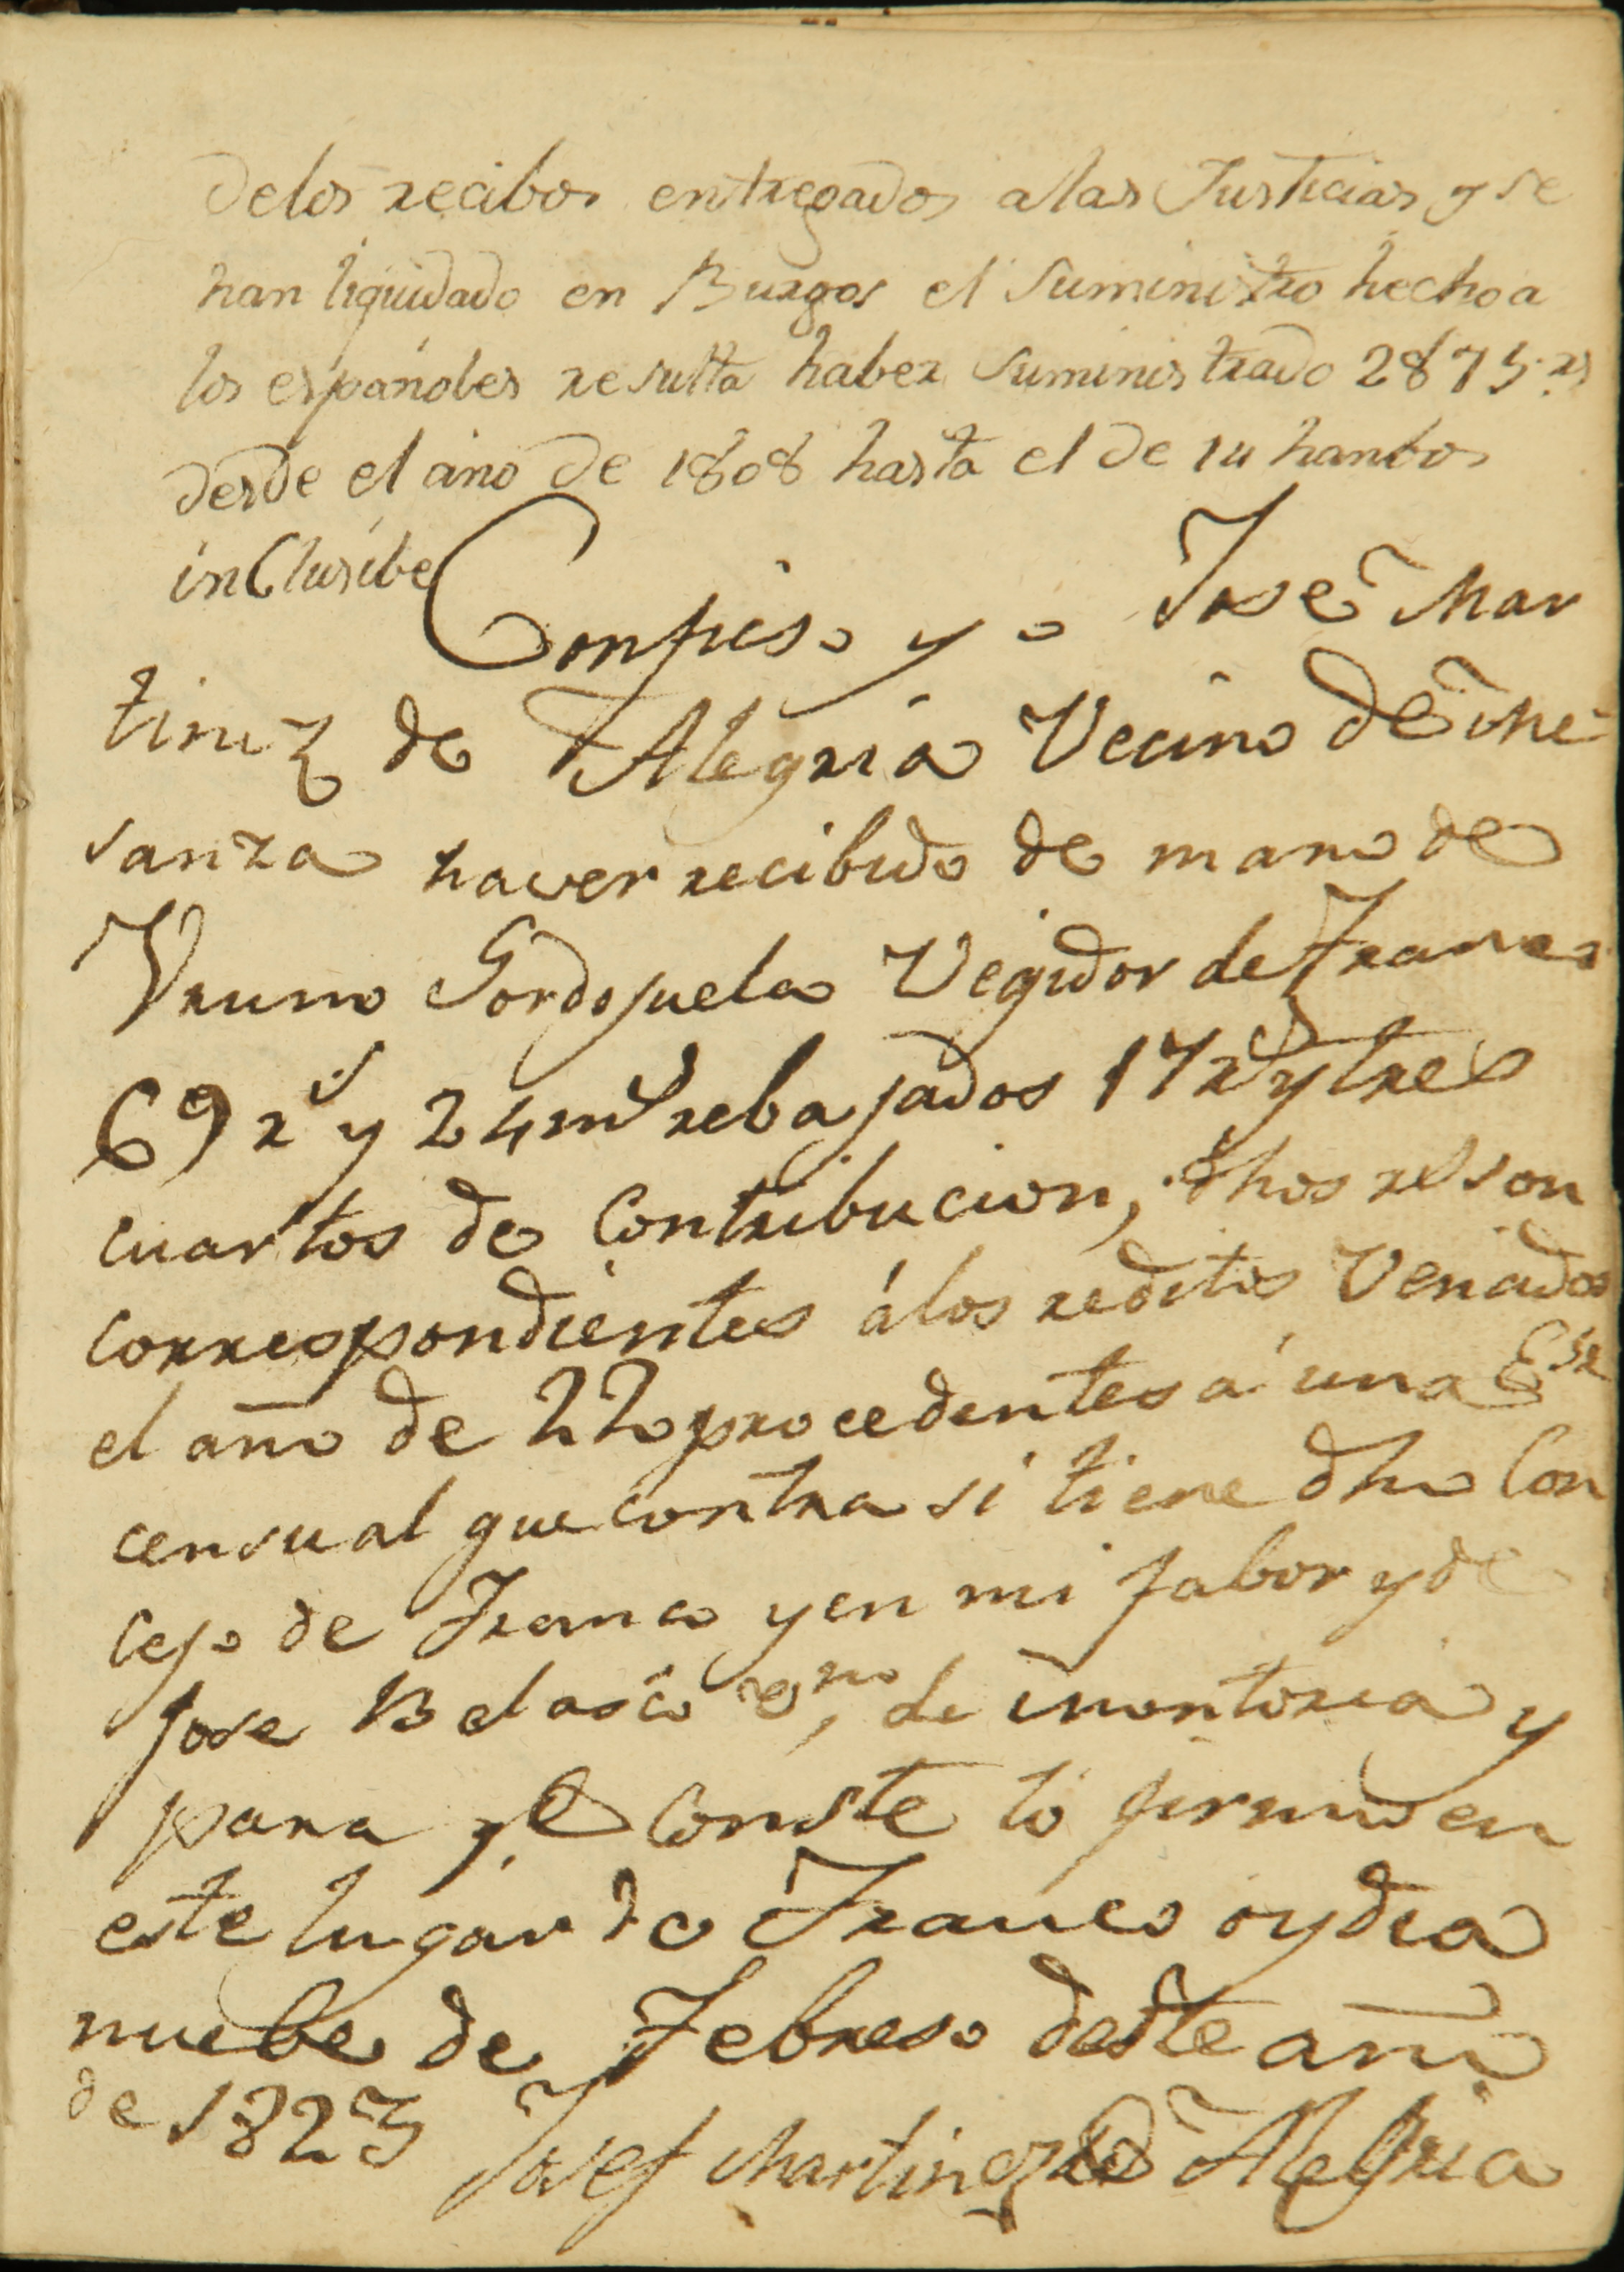 delos recibos entregados a las Justicias y se
han liquidado en Burgos el suministro hecho a
los españoles resulta haber suministrado 2875 rs
desde el año de 1808 hasta el de 14 hambos
inClusibe
Confieso yo Jose Mar
tinez de Alegria Vecino de Me
sanza haver recibido de mano de
Vruno Gordojuela Regidor de Franco
69 rs y 24 ms rebajados 17 rs y tres
cuartos de Contribucion, dhos rs son
correspondientes á los reditos Vencidos
el año de 22 procedentes á una Essra
censual que contra si tiene dho Con
cejo de Franco y en mi fabor y de
Jose Belasco vno de Montoria y
para qe Conste lo firmo en
este lugar de Franco oy dia
nuebe de Febrero deste año
de 1823 Josef Martinez de Alegria